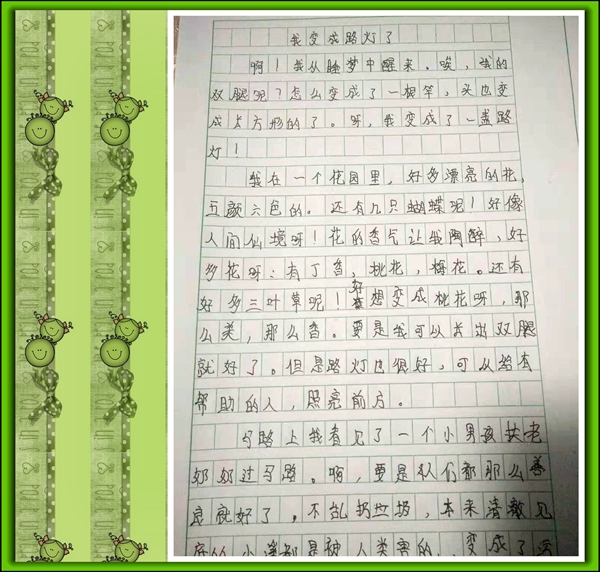 我变成路灯了
啊！我从睡梦中醒来。唉，我的
双腿呢？怎么变成了一根竿，头也变
成长方形的了。呀，我变成了一盏路
灯！
我在一个花园里，好多漂亮的花，
五颜六色的。还有几只蝴蝶呢！好像
人间仙境呀！花的香气让我陶醉，好
多花呀：有丁香，桃花，梅花。还有
好多三叶草呢！好想变成桃花呀，那
么美，那么香。要是我可以长出双腿
就好了。但是路灯也很好，可以给有
帮助的人，照亮前方。
马路上我看见了一个小男孩扶老
奶奶过马路。啊，要是人们都那么善
良就好了。不乱扔垃圾，本来清澈见
底的小溪都是被人类害的，变成了污